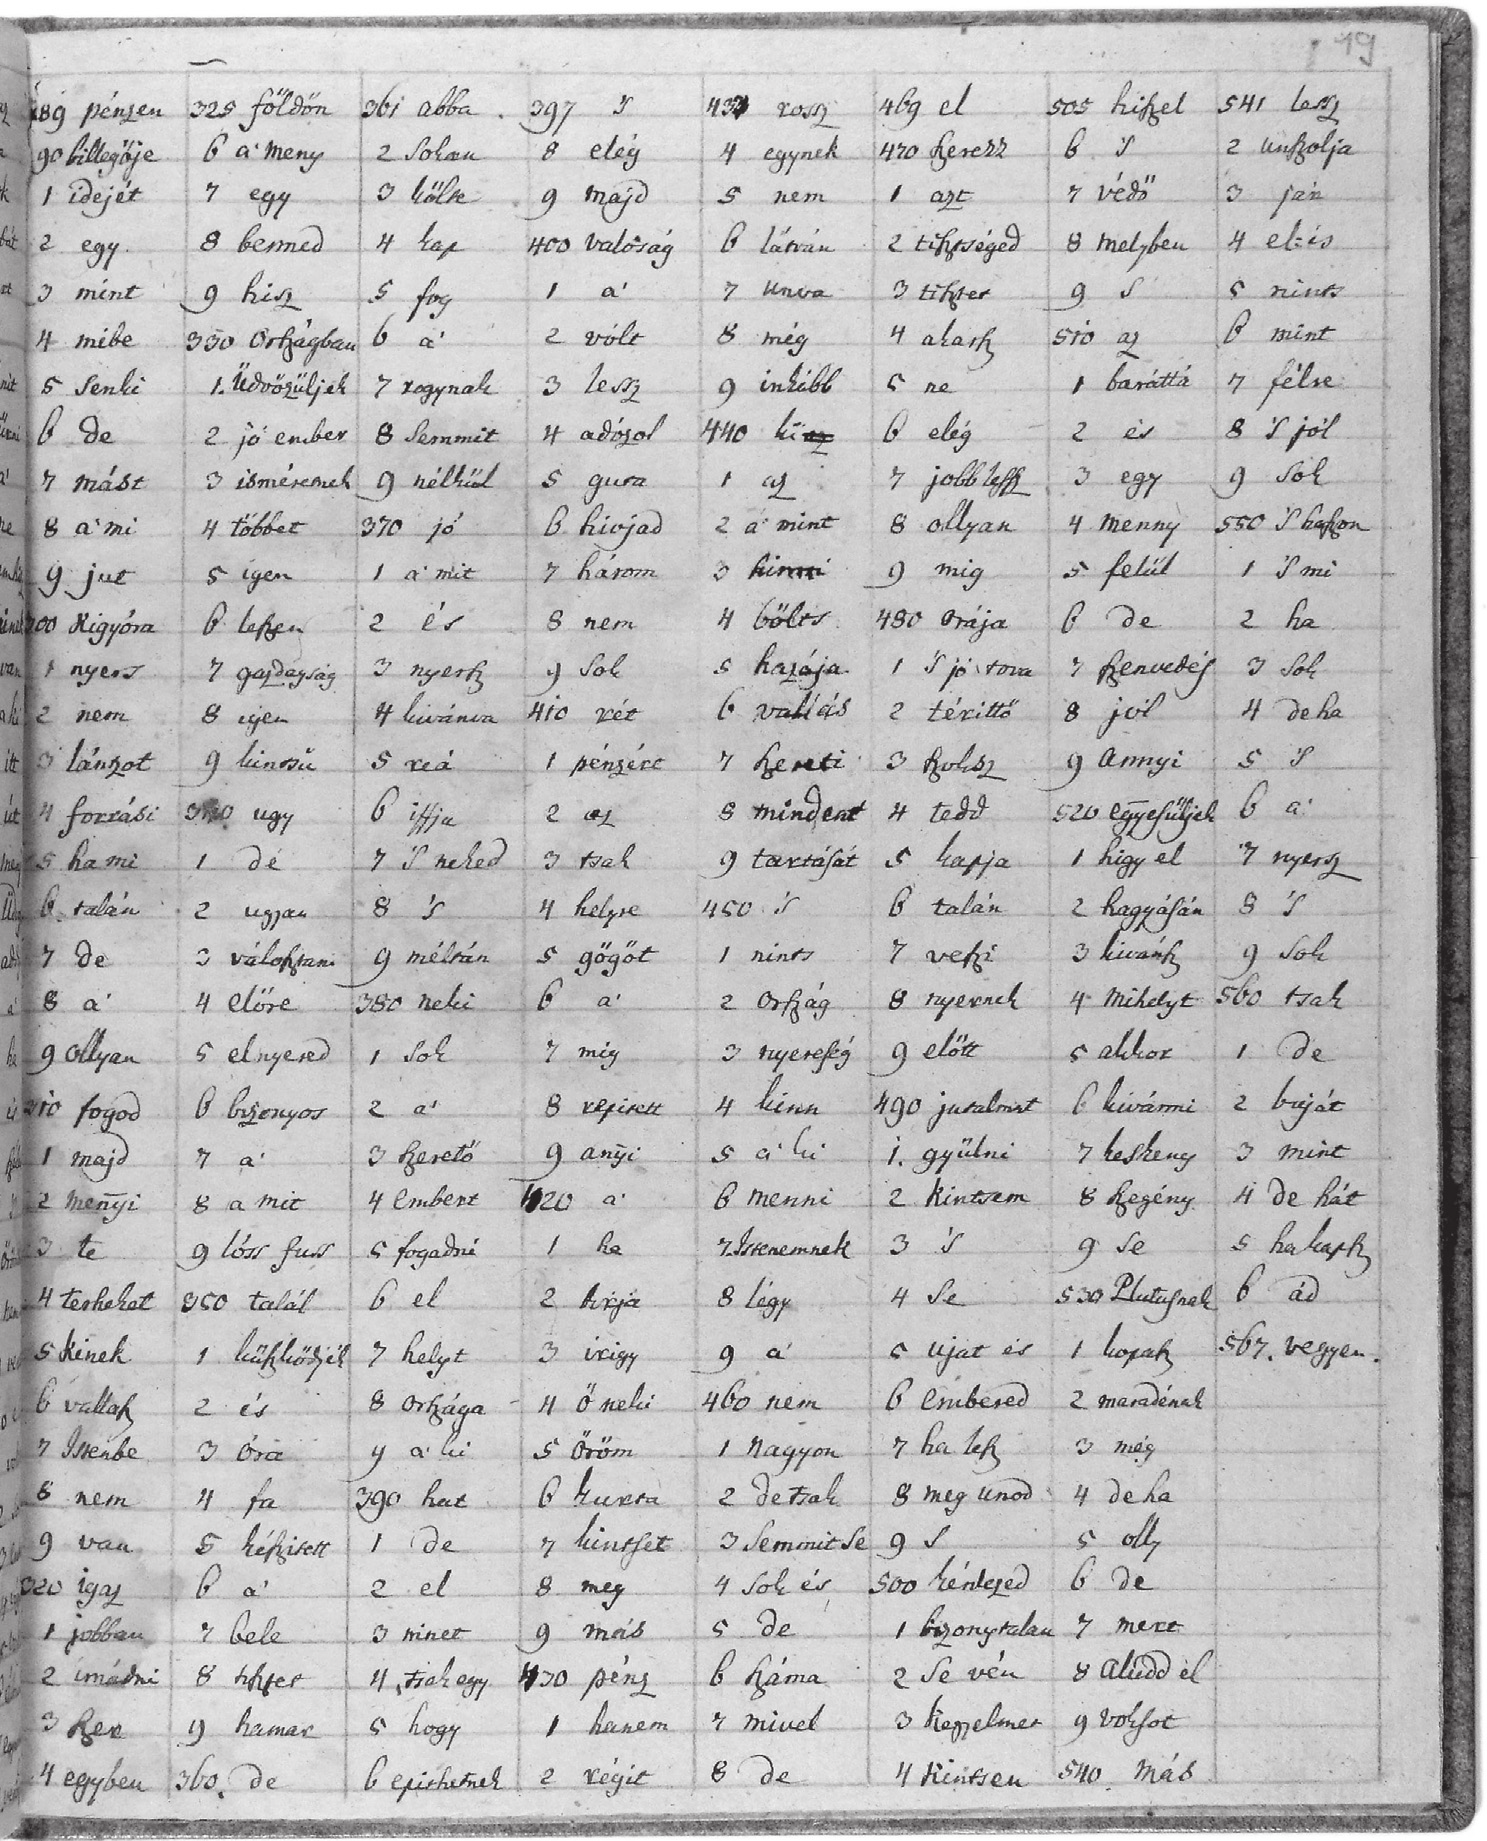 19
289 pénzen 325 földön 361 abba 397 'S 433 rossz 469 el 505 hiszel 541 lessz
90 billegője 6 a' meny 2 Sokan 8 elég 4 egynek 470 szerezz 6 'S 2 unszolja
1 idejét 7 egy 3 költ 9 majd 5 nem 1 azt 7 védő 3 ján
2 egy 8 benned 4 kap 400 valóság 6 látván 2 tisztséged 8 melyben 4 el-és
3 mint 9 hisz 5 fog 1 a' 7 unva 3 tisztet 9 S 5 nints
4 mibe 330 Országban 6 a' 2 vólt 8 még 4 akarsz 510 az 6 mint
5 Senki 1. Üdvözüljek 7 rogynak 3 lessz 9 inkább 5 ne 1 baráttá 7 félre
6 de 2 jó ember 8 Semmit 4 adózol 440 ki 6 elég 2 es 8 'S jól
7 mást 3 isméretnek 9 nélkül 5 gura 1 az 7 jobb lessz 3 egy 9 Sok
8 a' mi 4 többet 370 jó 6 hivjad 2 a' mint 8 ollyan 4 menny 550 'S haszon
9 jut 5 igen 1 a' mit 7 három 3 hinni 9 mig 5 felül 1 'S mi
300 Kigyóra 6 leszen 2 és 8 nem 4 bölts 480 órája 6 de 2 ha
1 nyers 7 gazdagság 3 nyersz 9 Sok 5 hazája 1 'S jó tova 7 szenvedés 3 Sok
2 nem 8 igen 4 kivánva 410 rét 6 vallás 2 térittő 8 jól 4 de ha
3 lánzot 9 kintsü 5 reá 1 pénzért 7 szereti 3 szolsz 9 Annyi 5 'S
4 forrási 340 ugy 6 iffja 2 az 8 mindent 4 tedd 520 egyesüljek 6 a'
5 ha mi 1 de 7 'S neked 3 tsak 9 tartását 5 kapja 1 higy el 7 nyersz
6 talán 2 ugyan 8 'S 4 helyre 450 'S 6 talán 2 hagyásán 8 'S
7 de 3 válosztani 9 méltán 5 gőgöt 1 nints 7 veszi 3 kivánsz 9 Sok
8 a' 4 előre 380 neki 6 a' 2 Ország 8 nyernek 4 mihelyt 560 tsak
9 ollyan 5 elnyered 1 Sok 7 mig 3 nyereség 9 előtt 5 akkor 1 de
310 fogod 6 bizonyos 2 a' 8 repitett 4 kinn 490 jutalmat 6 kivánni 2 buját
1 majd 7 a' 3 szerető 9 anyi 5 a' ki 1. gyülni 7 keskeny 3 mint
2 menyi 8 a mit 4 embert 420 a' 6 menni 2 kintsem 8 szegény 4 de hát
3 te 9 lóss fuss 5 fogadni 1 ha 7 Istenemnek 3 'S 9 Se 5 ha kapsz
4 terheket 350 talál 6 el 2 birja 8 légy 4 Se 530 Plutusnek 6 ád
5 kinek 1 küszködjék 7 helyt 3 irigy 9 a' 5 ujat és 1 kopasz 567. vegyen.
6 vallasz 2 és 8 Országa 4 ő neki 460 nem 6 embered 2 maradének
7 Istenbe 3 óra 9 a' ki 5 öröm 1 nagyon 7 ha lesz 3 még
8 nem 4 fa 390 hat 6 kurta 2 de tsak 8 meg unod 4 de ha
9 van 5 készitett 1 de 7 kintset 3 Semmit Se 9 S 5 olly
320 igaz 6 a' 2 el 8 meg 4 Sok és 500 kérdezed 6 de
1 jobban 7 bele 3 minet 9 más 5 de 1 bizonytalan 7 mert
2 imádni 8 tisztet 4 tsak egy 430 pénz 6 száma 2 Se vén 8 aludd el
3 szer 9 hamar 5 hogy 1 hanem 7 mivel 3 kegyelmet 9 voksot
4 egyben 360. de 6 epithetnek 2 régit 8 de 4 kintsen 540. más